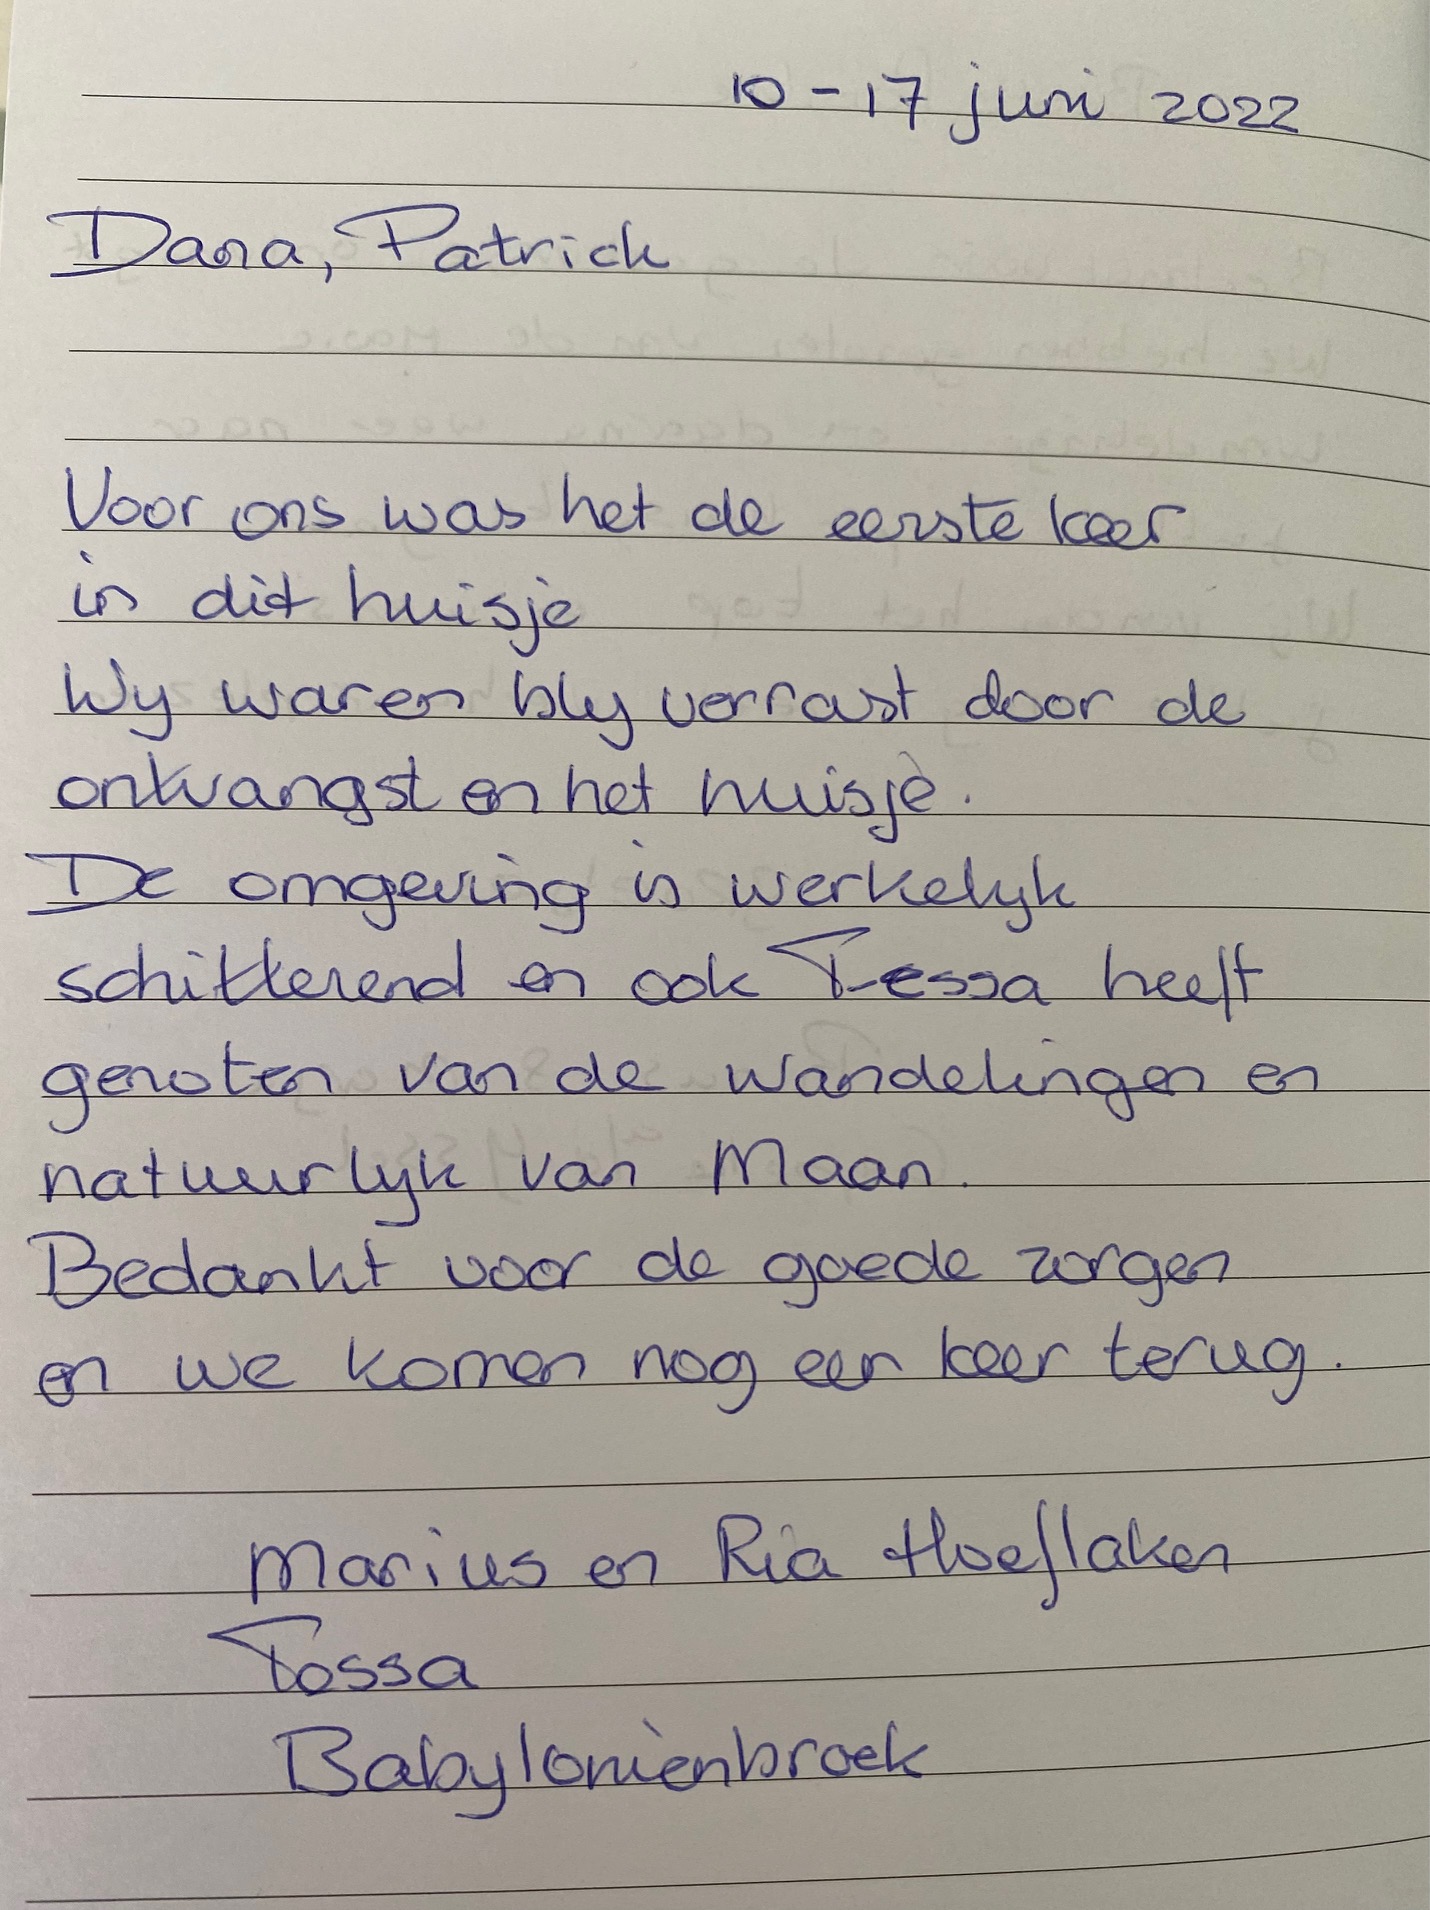 10 - 17 juni 2022
Dana, Patrick
Voor ons was het de eerste keer
in dit huisje
Wy waren bly verrast door de
ontvangst en het huisje.
De omgeving is werkelyk
schitterend en ook Tessa heeft
genoten van de wandelingen en
natuurlyk van Maan.
Bedankt voor de goede zorgen
en we komen nog een keer terug.
Marius en Ria Hoeflaken
Tessa
Babyloniënbroek